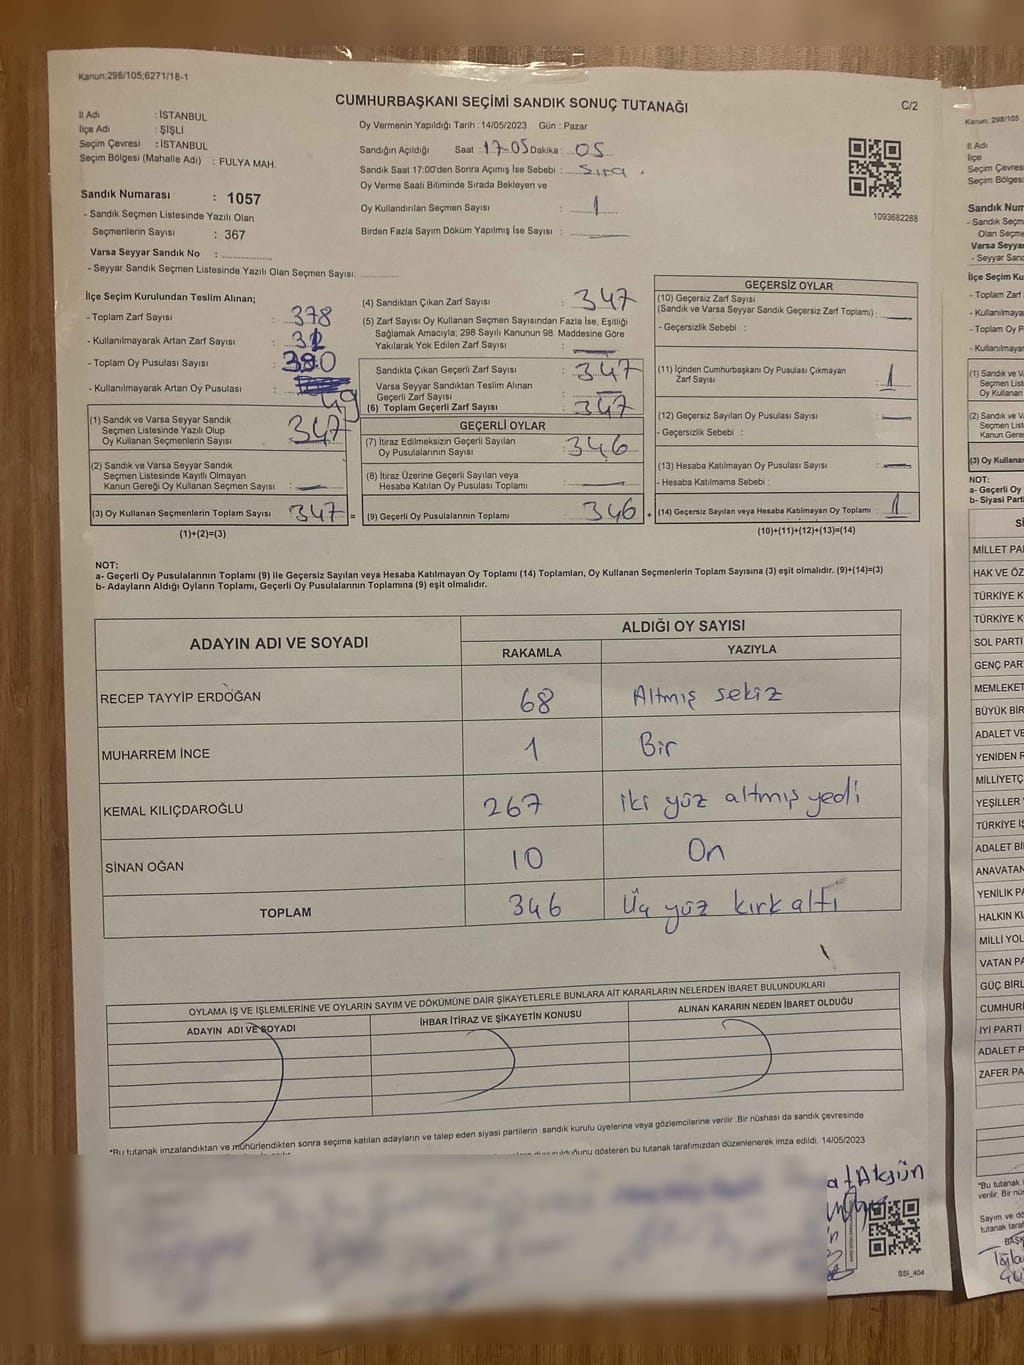 Kanun;298/105;6271/18-1
CUMHURBAŞKANI SEÇİMİ SANDIK SONUÇ TUTANAĞI
C/2
İl Adı : İSTANBUL
İlçe Adı : ŞİŞLİ
Seçim Çevresi : İSTANBUL
Seçim Bölgesi (Mahalle Adı) : FULYA MAH.
Sandık Numarası : 1057
- Sandık Seçmen Listesinde Yazılı Olan
Seçmenlerin Sayısı : 367
Varsa Seyyar Sandık No :
- Seyyar Sandık Seçmen Listesinde Yazılı Olan Seçmen Sayısı:
Oy Vermenin Yapıldığı Tarih : 14/05/2023 Gün : Pazar
Sandığın Açıldığı Saat : 17.05 Dakika : 05
Sandık Saat 17:00'den Sonra Açımış İse Sebebi : Sıra.
Oy Verme Saati Bitiminde Sırada Bekleyen ve
Oy Kullandırılan Seçmen Sayısı : 1
Birden Fazla Sayım Döküm Yapılmış İse Sayısı :
1093682288
İlçe Seçim Kurulundan Teslim Alınan;
- Toplam Zarf Sayısı : 378
- Kullanılmayarak Artan Zarf Sayısı :
- Toplam Oy Pusulası Sayısı :
- Kullanılmayarak Artan Oy Pusulası : 49
(1) Sandık ve Varsa Seyyar Sandık
Seçmen Listesinde Yazılı Olup
Oy Kullanan Seçmenlerin Sayısı : 347
(2) Sandık ve Varsa Seyyar Sandık
Seçmen Listesinde Kayıtlı Olmayan
Kanun Gereği Oy Kullanan Seçmen Sayısı :
(3) Oy Kullanan Seçmenlerin Toplam Sayısı 347 =
(1)+(2)=(3)
(4) Sandıktan Çıkan Zarf Sayısı : 347
(5) Zarf Sayısı Oy Kullanan Seçmen Sayısından Fazla İse, Eşitliği
Sağlamak Amacıyla; 298 Sayılı Kanunun 98. Maddesine Göre
Yakılarak Yok Edilen Zarf Sayısı :
Sandıkta Çıkan Geçerli Zarf Sayısı : 347
Varsa Seyyar Sandıktan Teslim Alınan
Geçerli Zarf Sayısı :
(6) Toplam Geçerli Zarf Sayısı : 347
GEÇERLİ OYLAR
(7) İtiraz Edilmeksizin Geçerli Sayılan
Oy Pusulalarının Sayısı : 346
(8) İtiraz Üzerine Geçerli Sayılan veya
Hesaba Katılan Oy Pusulası Toplamı :
(9) Geçerli Oy Pusulalarının Toplamı : 346 +
GEÇERSİZ OYLAR
(10) Geçersiz Zarf Sayısı
(Sandık ve Varsa Seyyar Sandık Geçersiz Zarf Toplamı) :
- Geçersizlik Sebebi :
(11) İçinden Cumhurbaşkanı Oy Pusulası Çıkmayan
Zarf Sayısı : 1
(12) Geçersiz Sayılan Oy Pusulası Sayısı :
- Geçersizlik Sebebi :
(13) Hesaba Katılmayan Oy Pusulası Sayısı :
- Hesaba Katılmama Sebebi :
(14) Geçersiz Sayılan veya Hesaba Katılmayan Oy Toplamı : 1
(10)+(11)+(12)+(13)=(14)
NOT:
a- Geçerli Oy Pusulalarının Toplamı (9) ile Geçersiz Sayılan veya Hesaba Katılmayan Oy Toplamı (14) Toplamları, Oy Kullanan Seçmenlerin Toplam Sayısına (3) eşit olmalıdır. (9)+(14)=(3)
b- Adayların Aldığı Oyların Toplamı, Geçerli Oy Pusulalarının Toplamına (9) eşit olmalıdır.
ADAYIN ADI VE SOYADI
ALDIĞI OY SAYISI
RAKAMLA YAZIYLA
RECEP TAYYİP ERDOĞAN 68 Altmış sekiz
MUHARREM İNCE 1 Bir
KEMAL KILIÇDAROĞLU 267 iki yüz altmış yedi
SİNAN OĞAN 10 On
TOPLAM 346 Üç yüz kırk altı
OYLAMA İŞ VE İŞLEMLERİNE VE OYLARIN SAYIM VE DÖKÜMÜNE DAİR ŞİKAYETLERLE BUNLARA AİT KARARLARIN NELERDEN İBARET BULUNDUKLARI
ADAYIN ADI VE SOYADI İHBAR İTİRAZ VE ŞİKAYETİN KONUSU ALINAN KARARIN NEDEN İBARET OLDUĞU
*Bu tutanak imzalandıktan ve mühürlendikten sonra seçime katılan adayların ve talep eden siyasi partilerin sandık kurulu üyelerine veya gözlemcilerine verilir .Bir nüshası da sandık çevresinde
gösteren bu tutanak tarafımızdan düzenlenerek imza edildi. 14/05/2023
Akgün
SSI_404
Kanun: 298/105
İl Adı
İlçe
Seçim Çevres
Seçim Bölges
Sandık Num
- Sandık Seçm
Olan Seçme
Varsa Seyya
- Seyyar Sand
İlçe Seçim Ku
- Toplam Zarf
- Kullanılmaya
- Toplam Oy P
- Kullanılmaya
(1) Sandık ve Va
Seçmen List
Oy Kullanan
(2) Sandık ve V
Seçmen List
Kanun Gere
(3) Oy Kullana
NOT:
a- Geçerli Oy
b- Siyasi Part
Sİ
MİLLET PA
HAK VE ÖZ
TÜRKİYE K
TÜRKİYE K
SOL PARTİ
GENÇ PAR
MEMLEKET
BÜYÜK BİR
ADALET VE
YENİDEN R
MİLLİYETÇ
YEŞİLLER
TÜRKİYE İŞ
ADALET Bİ
ANAVATAN
YENİLİK PA
HALKIN KU
MİLLİ YOL
VATAN PA
GÜÇ BİRL
CUMHURİ
İYİ PARTİ
ADALET P
ZAFER PA
*Bu tutanak
verilir. Bir nü
Sayım ve dö
tutanak tara
BAŞK